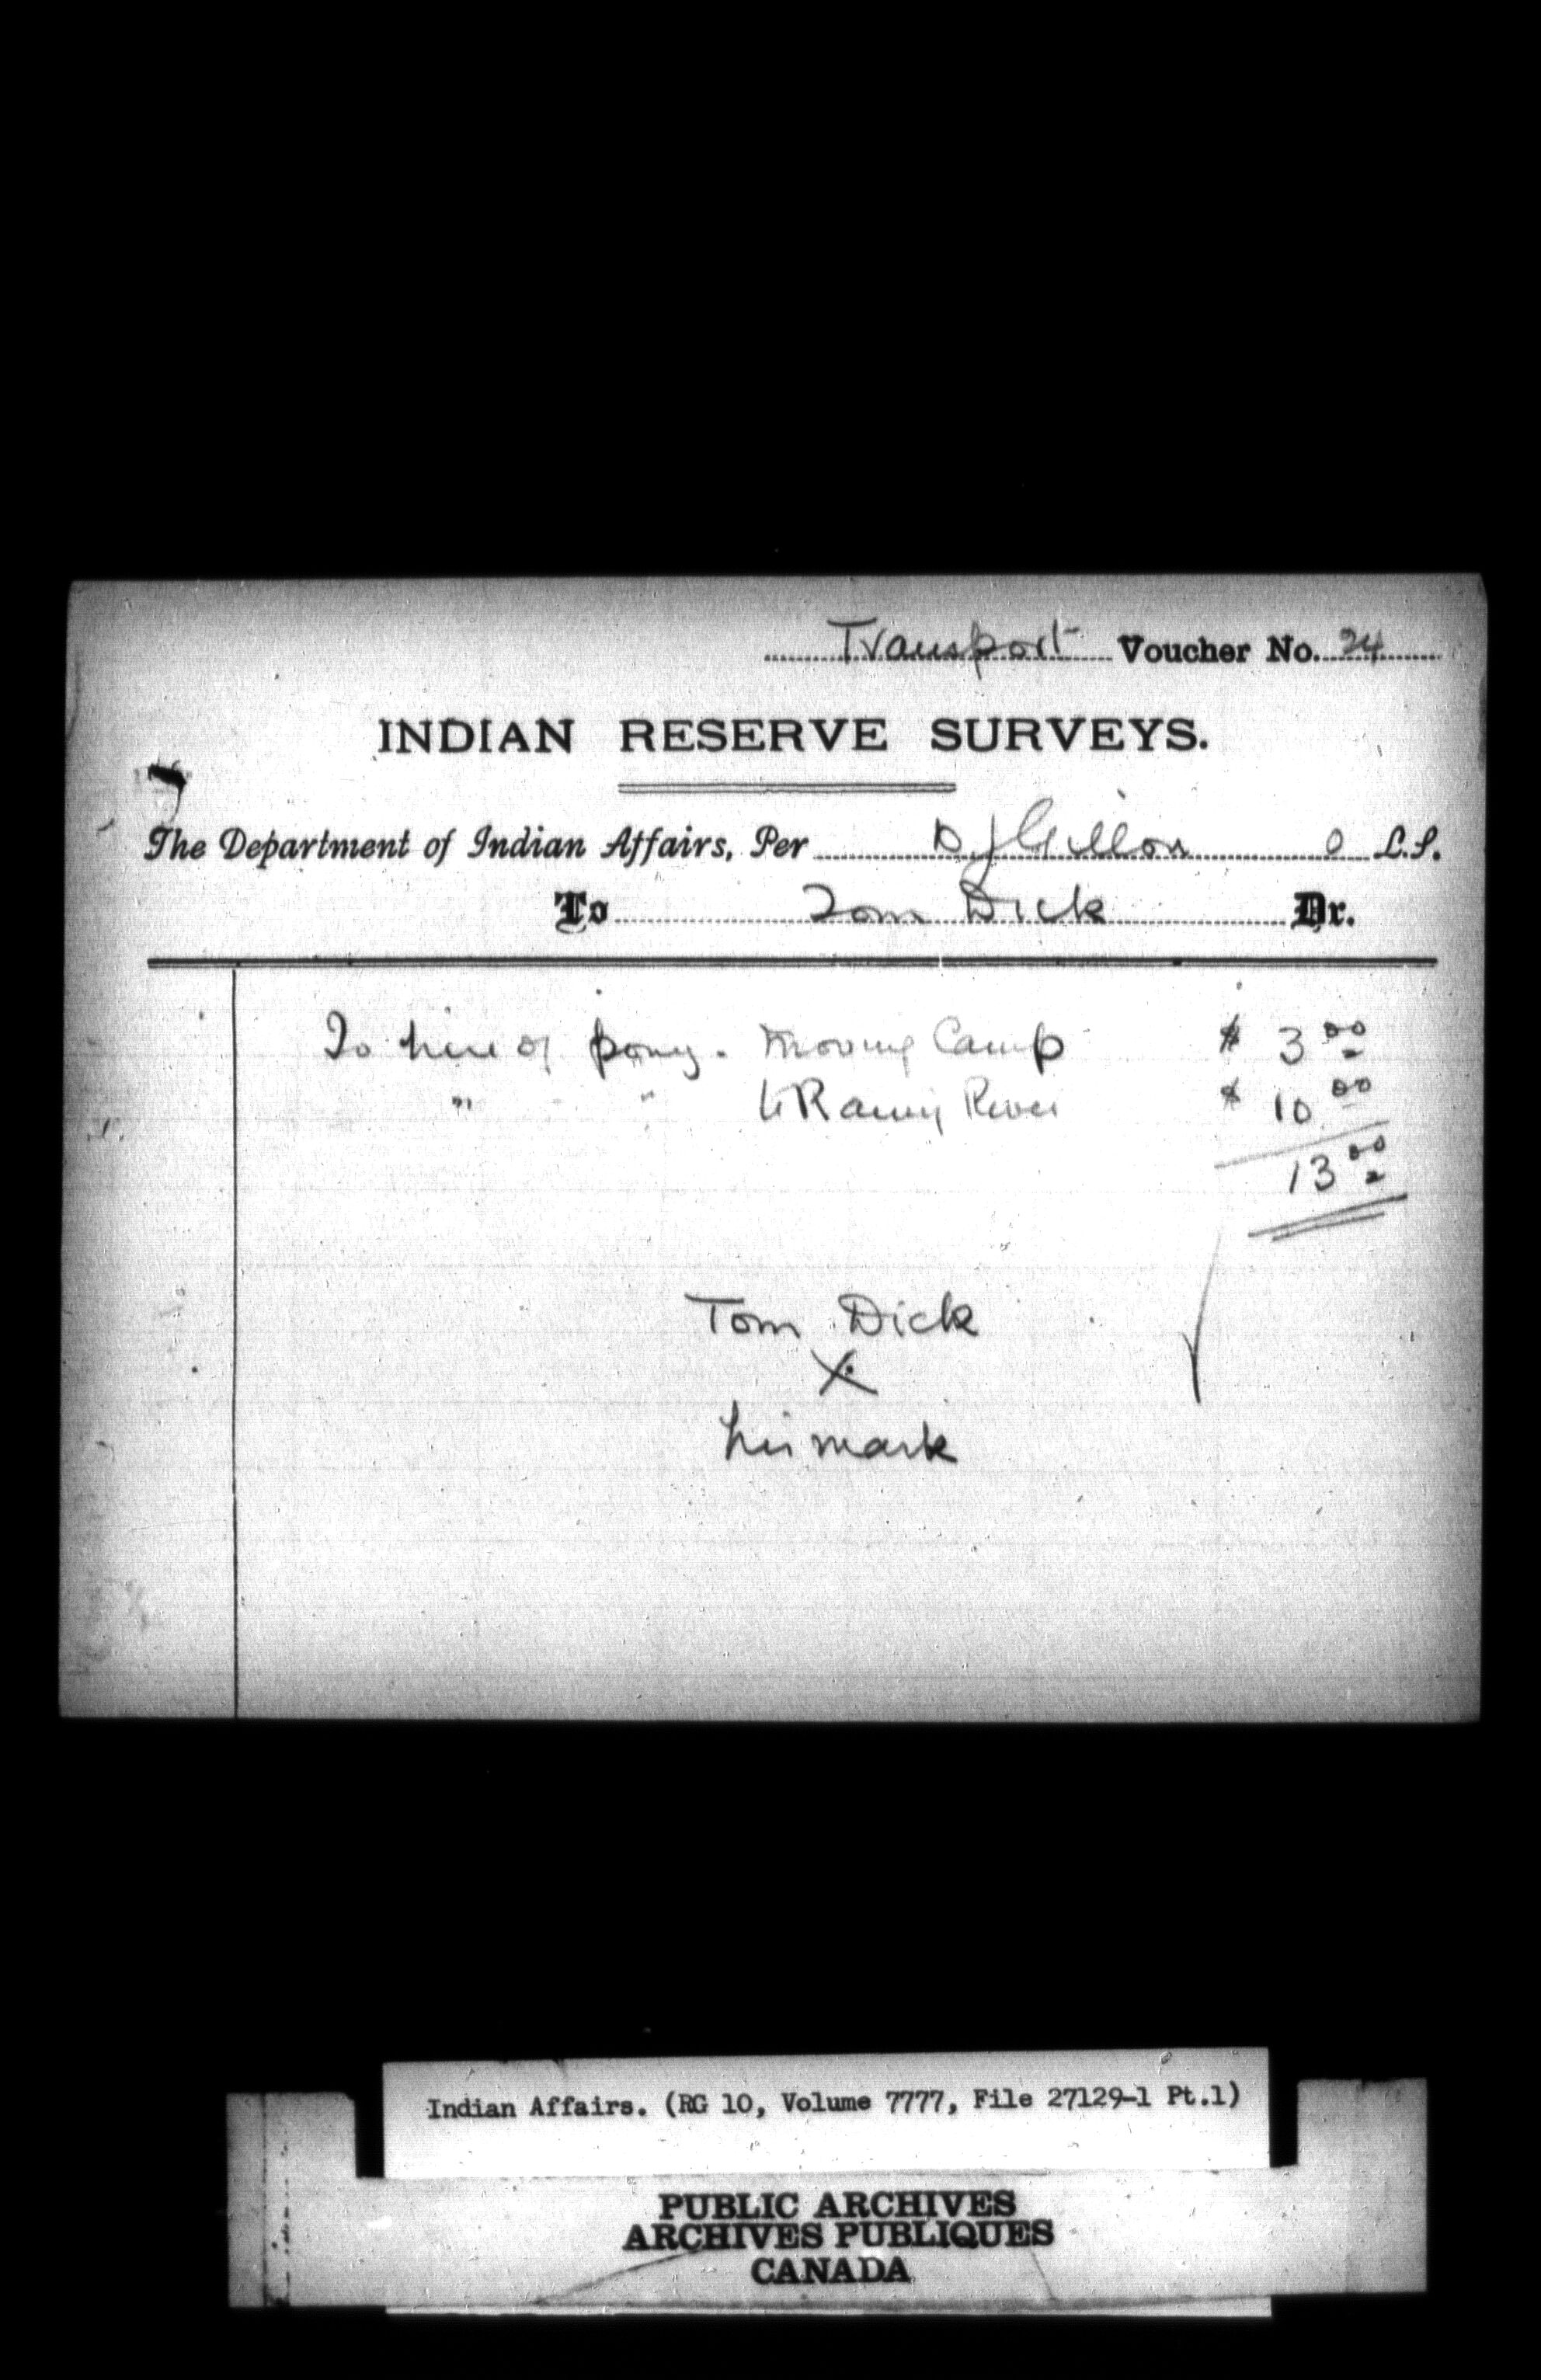 Transport Voucher No. 24
INDIAN RESERVE SURVEYS.
The Department of Indian Affairs, Per D J Gillon O L.S.
To Tom Dick Dr.
To hire of pony. Moving Camp $ 3 00
" " to Rainy River $ 10 00
13 00
Tom Dick
X
his mark
Indian Affairs. (RG 10, Volume 7777, File 27129-1 Pt.1)
PUBLIC ARCHIVES
ARCHIVES PUBLIQUES
CANADA